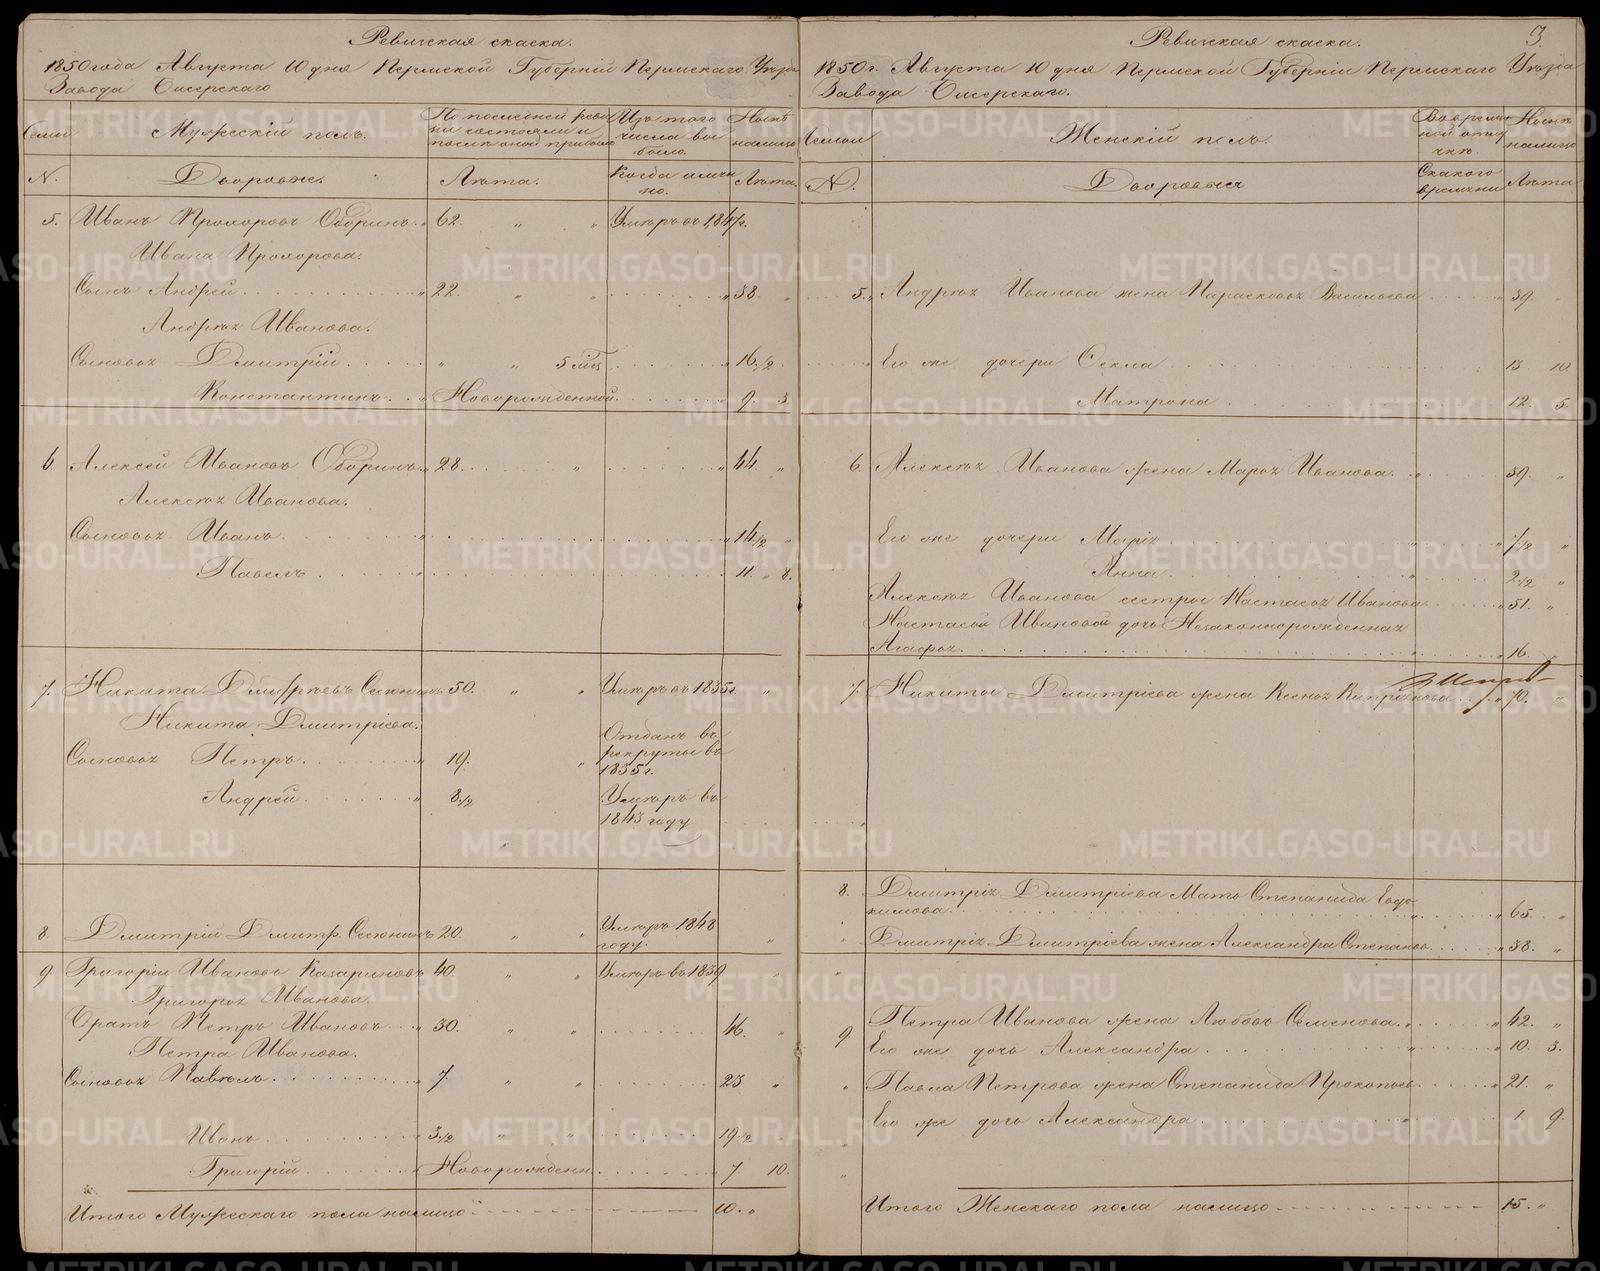 Ревижская скаска.
1850 года Августа 10 дня Пермской Губерніи Пермскаго Уѣзда
Завода Бисерскаго
Семьи
Мужескій полъ.
По последней реви-
зіи состояло и
послѣ оной прибыло
Изъ того
числа вы-
было.
Нынѣ
налицо
N.
Дворовые.
Лѣта.
Когда имян-
но.
Лѣта.
5. Иванъ Прохоровъ Оборинъ 62. " " Умеръ въ 184/г.
Ивана Прохорова.
Сынъ Андрей 22. " " 38. "
Андрея Иванова.
Сыновья Дмитрій " " 5 мц 16 1/2
Константинъ Новорожденной 9. 3.
6. Алексей Ивановъ Оборинъ 28. " " 44. "
Алексея Иванова.
Сыновья Иванъ 14 1/2 "
Павелъ 11. " 8.
7. Никита Дмитріевъ Сесюнинъ 50. " " Умеръ въ 1835г. "
Никита Дмитріева.
Сыновья Петръ 19. " Отданъ въ
рекруты въ
1835 г.
Андрей 8 1/2 Умеръ въ
1843 году
8. Дмитрій Дмитр. Сесюнинъ 20. " " Умеръ 1848
году. "
9. Григорій Ивановъ Казариновъ 40. " " Умеръ въ 1839 "
Григорья Иванова.
Братъ Петръ Ивановъ 30. " " 46. "
Петра Иванова.
Сыновья Павелъ 7. " " 23 "
Иванъ 3 1/2 " " 19 1/2
Григорій Новорожденн. 7. 10.
Итого Мужескаго пола налицо 10. "
3.
Ревижская скаска.
1850 г. Августа 10 дня Пермской Губерніи Пермскаго Уѣзда
Завода Бисерскаго.
Семьи
Женскій полъ.
Во времян-
ной отлу-
чкѣ.
Нынѣ
налицо
N.
Дворовыя
Съкакого
времяни
Лѣта
5. Андрея Иванова жена Парасковья Васильева 39. "
Его же дочери Фекла 13 10.
Матрона 12. 5.
6. Алексея Иванова жена Марья Иванова. 39. "
Его же дочери Марія 7 1/2 "
Анна 2 1/2 "
Алексея Иванова сестры Настасья Иванова 51. "
Настасьи Ивановой дочь Незаконнорожденная
Агафья 16. "
7. Никиты Дмитріева жена Ксенья 70. "
8. Дмитрія Дмитріева Мать Степанида Евдо-
кимова 65. "
" Дмитрія Дмитріева жена Александра Степанов. 38. "
9. Петра Иванова жена Любовь Семенова. 42. "
Его же дочь Александра 10. 3.
" Павла Петрова жена Степанида Прокопьев. 21. "
Его же дочь Александра 1. 9.
Итого Женскаго пола налицо 15. "
METRIKI.GASO-URAL.RU